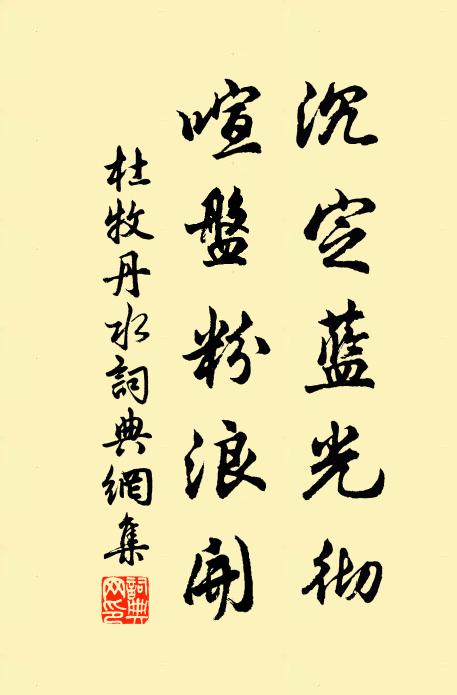 沉定藍光徹
喧盤粉浪開
杜牧丹水詞典網集
詞典網印